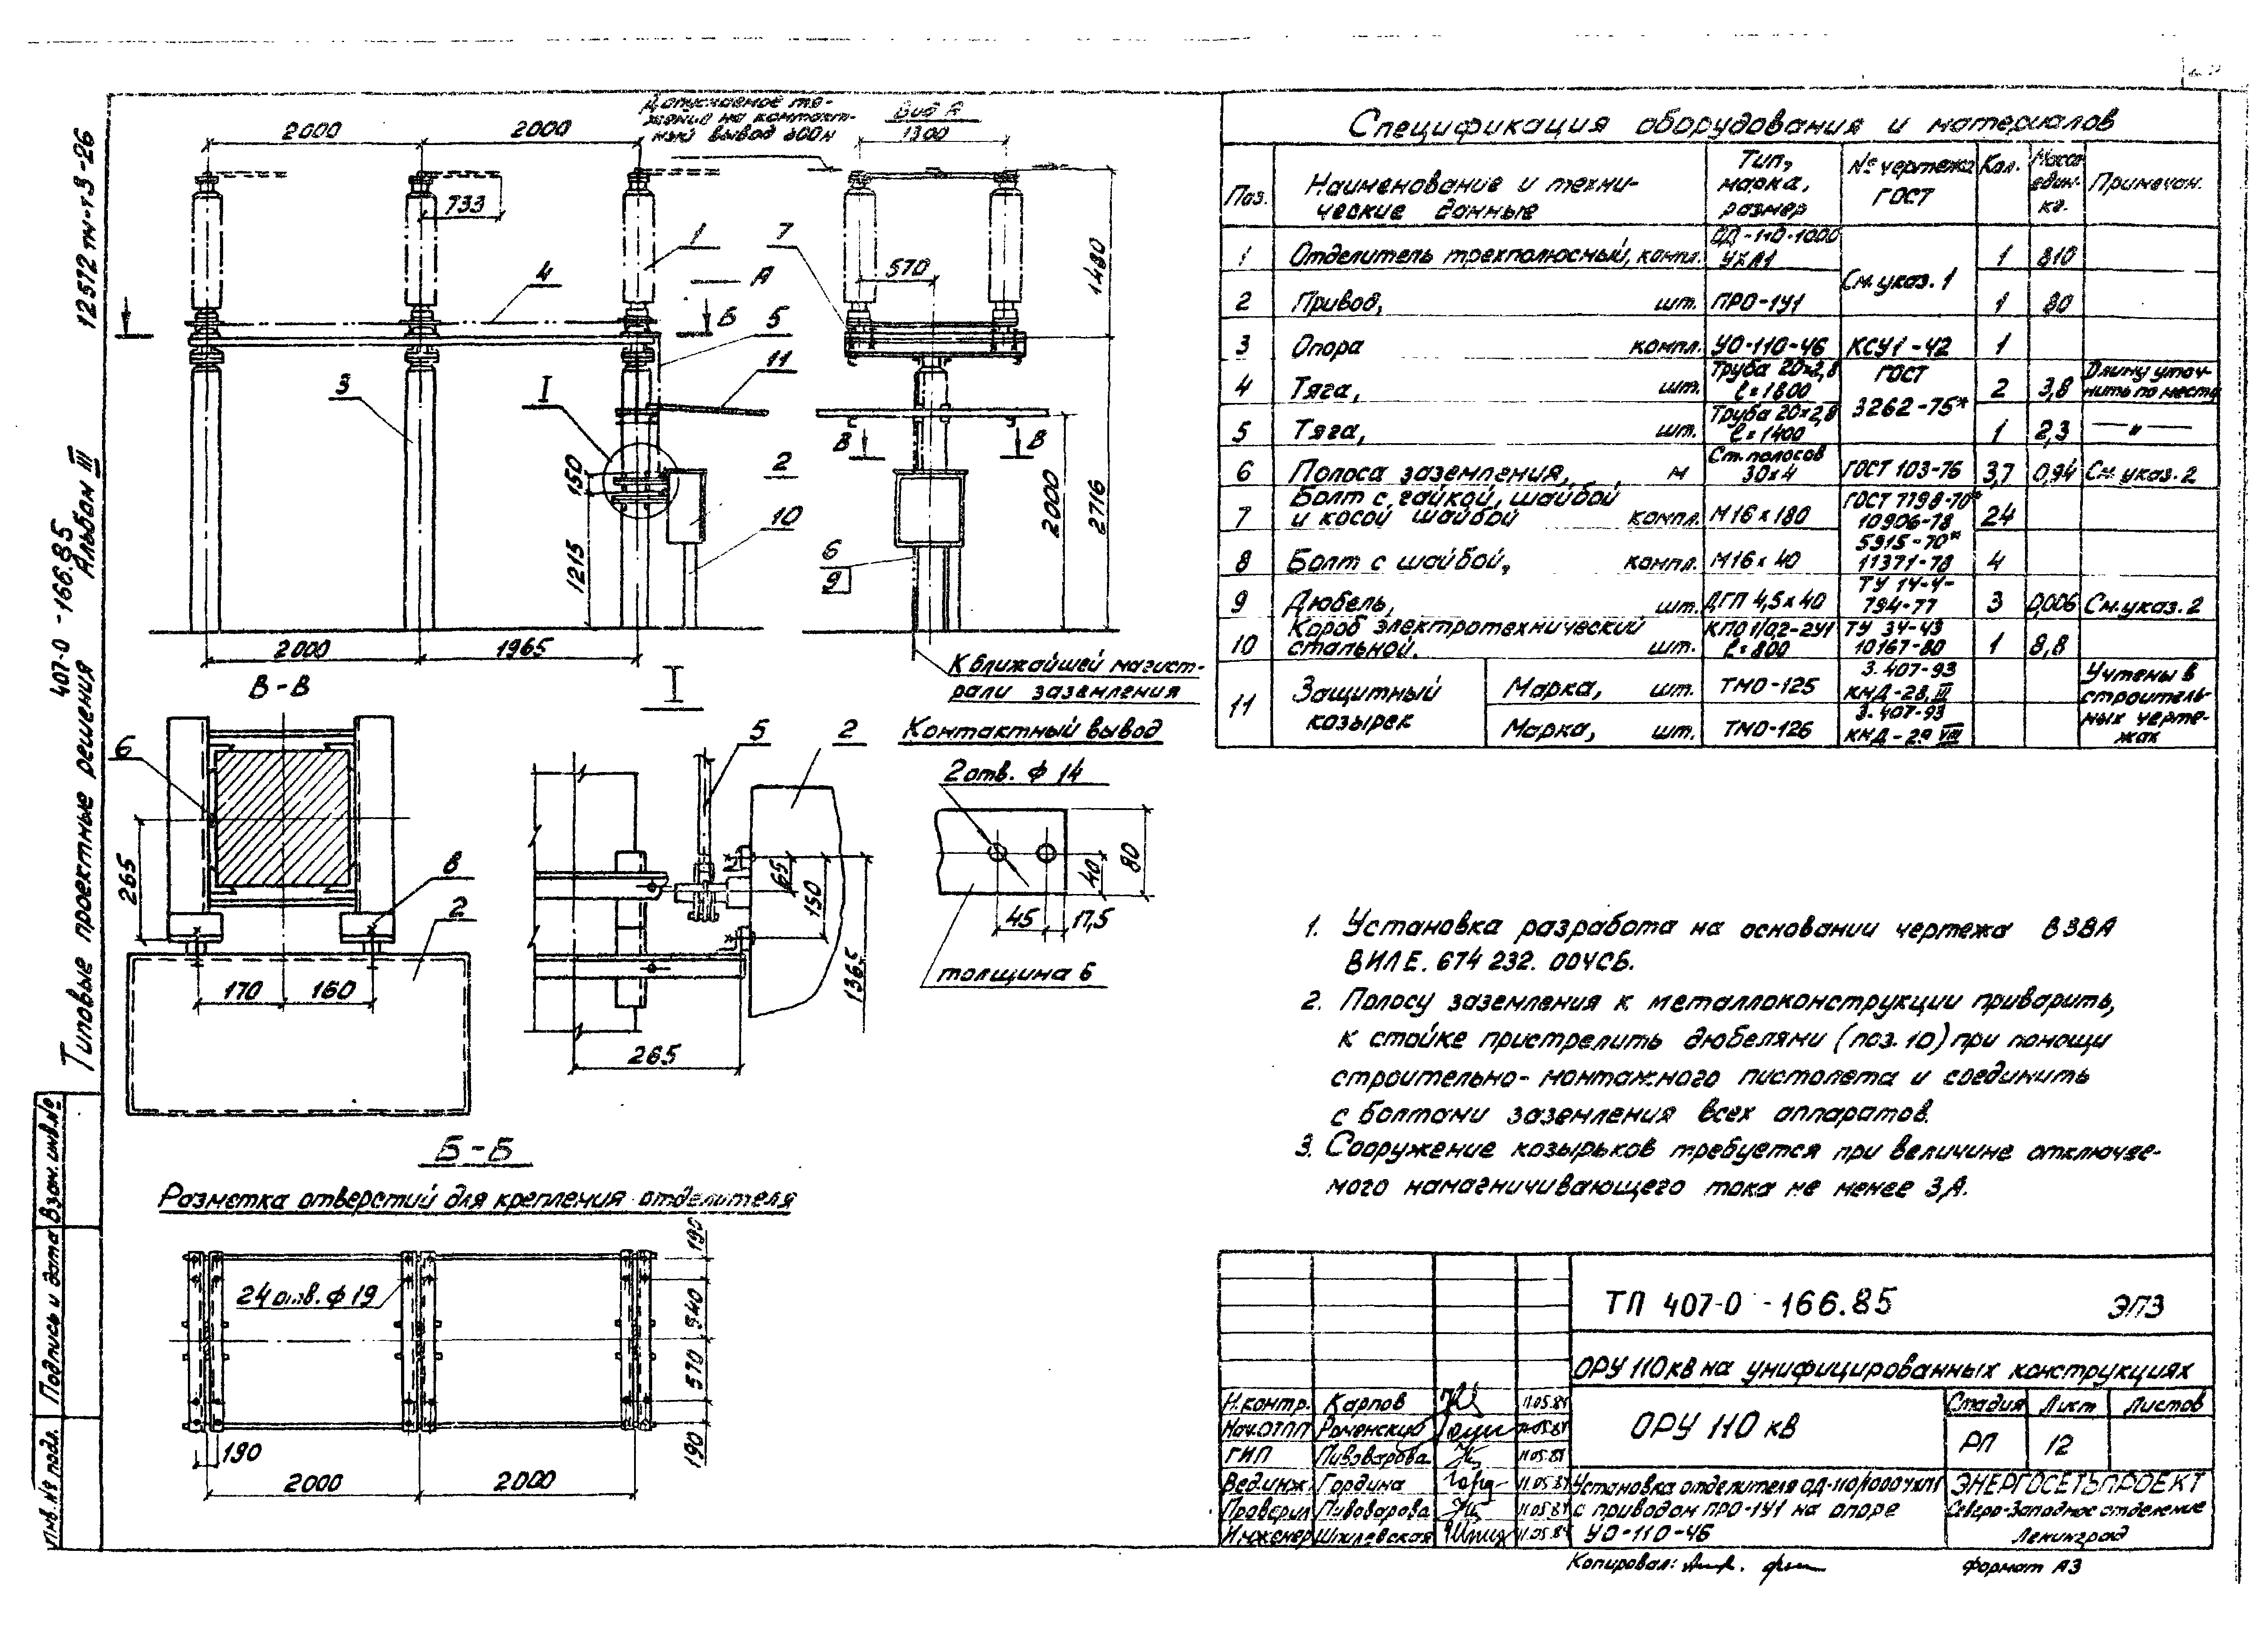 12572 тм-т3-26
407-0 -166.85
Альбом III
Типовые проектные решения
Взам. инв.№
Подпись и дата
Инв. № подл.
Допускаемое тя-
жение на контакт-
ный вывод 800н
Вид А
2000
2000
1300
733
570
1
7
4
А
Б
5
11
I
3
2
10
150
1215
В
В
6
9
1480
2000
2716
2000
1965
К ближайшей магист-
рали заземления
В-В
6
265
8
2
170
160
I
5
2
65
150
1365
265
Контактный вывод
2 отв. ф 14
80
40
45
17,5
толщина 6
Б-Б
Разметка отверстий для крепления отделителя
24 отв. ф 19
190
940
570
190
190
2000
2000
Спецификация оборудования и материалов
Поз.
Наименование и техни-
ческие данные
Тип,
марка,
размер
№ чертежа
ГОСТ
Кол.
Масса
един.
кг.
Примечан.
1 Отделитель трехполюсный, компл. ОД-110-1000 УХЛ1 См. указ. 1 1 810
2 Привод, шт. ПРО-1У1 1 80
3 Опора компл. УО-110-46 КСУ1-42 1
4 Тяга, шт. Труба 20×2,8 ℓ=1800 ГОСТ 3262-75* 2 3,8 Длину уточ-
нить по месту
5 Тяга, шт. Труба 20×2,8 ℓ=1400 1 2,3 — „ —
6 Полоса заземления, м Ст. полосов 30×4 ГОСТ 103-76 3,7 0,94 См. указ. 2
7 Болт с гайкой, шайбой
и косой шайбой компл. М16×180 ГОСТ 7798-70* 10906-78 24
5915-70*
8 Болт с шайбой, компл. М16×40 11371-78 4
9 Дюбель, шт. ДГП 4,5×40 ТУ 14-4-
794-77 3 0,006 См. указ. 2
10 Короб электротехнический
стальной. шт. КП011/0,2-2У1 ℓ=800 ТУ 34-43
10167-80 1 8,8
11 Защитный
козырек
Марка, шт. ТМО-125 3.407-93
КМД-28 III
Марка, шт. ТМО-126 3.407-93
КМД-29 VIII
Учтены в
строитель-
ных черте-
жах
1. Установка разработа на основании чертежа ВЗВА
ВИЛЕ. 674 232. 004СБ.
2. Полосу заземления к металлоконструкции приварить,
к стойке пристрелить дюбелями (поз. 10) при помощи
строительно-монтажного пистолета и соединить
с болтами заземления всех аппаратов.
3. Сооружение козырьков требуется при величине отключае-
мого намагничивающего тока не менее 3А.
ТП 407-0 -166.85 ЭП3
ОРУ 110кв на унифицированных конструкциях
ОРУ 110 кв
Стадия Лист Листов
РП 12
Н.контр. Карпов 11.05.84
Нач.ОТПП Роменский 11.05.84
ГИП Пивоварова 11.05.84
Вед.инж. Гордина 11.05.84
Проверил Пивоварова 11.05.84
Инженер Шпилевская 11.05.84
Установка отделителя ОД-110/1000УХЛ1
с приводом ПРО-1У1 на опоре
УО-110-46
ЭНЕРГОСЕТЬПРОЕКТ
Северо-Западное отделение
Ленинград
Копировал:
Формат А3